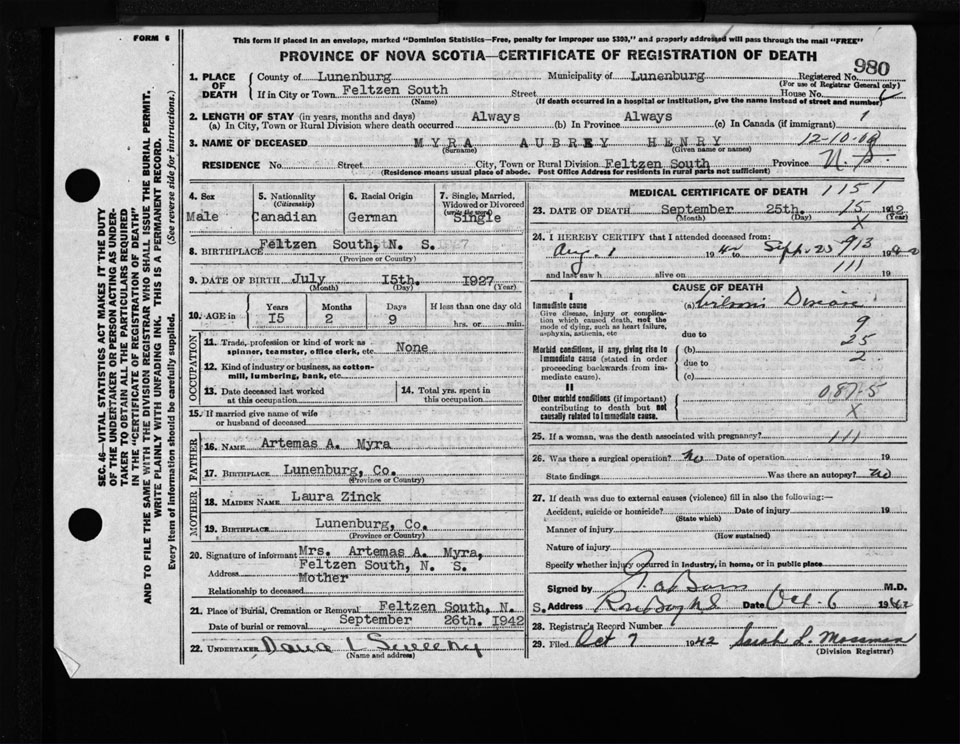 FORM 6
This form if placed in an envelope, marked "Dominion Statistics—Free, penalty for improper use $300," and properly addressed will pass through the mail "FREE"
PROVINCE OF NOVA SCOTIA—CERTIFICATE OF REGISTRATION OF DEATH
980
1. PLACE OF DEATH
County of Lunenburg Municipality of Lunenburg Registered No.
(For use of Registrar General only)
If in City or Town Feltzen South Street House No.
(Name) (If death occurred in a hospital or institution, give the name instead of street and number)
2. LENGTH OF STAY (in years, months and days)
(a) In City, Town or Rural Division where death occurred Always (b) In Province Always (c) In Canada (if immigrant) 1
3. NAME OF DECEASED MYRA AUBREY HENRY 12-10-08
(Surname) (Given name or names)
RESIDENCE No. Street City, Town or Rural Division Feltzen South Province N.S.
(Residence means usual place of abode. Post Office Address for residents in rural parts not sufficient)
4. Sex Male
5. Nationality (Citizenship) Canadian
6. Racial Origin German
7. Single, Married, Widowed or Divorced (write the word) Single
8. BIRTHPLACE Feltzen South, N. S.
(Province or Country)
9. DATE OF BIRTH July 15th. 1927
(Month) (Day) (Year)
10. AGE in Years Months Days If less than one day old
15 2 9 hrs. or min.
OCCUPATION
11. Trade, profession or kind of work as spinner, teamster, office clerk, etc. None
12. Kind of industry or business, as cotton-mill, lumbering, bank, etc.
13. Date deceased last worked at this occupation
14. Total yrs. spent in this occupation
15. If married give name of wife or husband of deceased
FATHER
16. NAME Artemas A. Myra
17. BIRTHPLACE Lunenburg, Co.
(Province or Country)
MOTHER
18. MAIDEN NAME Laura Zinck
19. BIRTHPLACE Lunenburg, Co.
(Province or Country)
20. Signature of informant Mrs. Artemas A. Myra,
Address Feltzen South, N. S.
Relationship to deceased Mother
21. Place of Burial, Cremation or Removal Feltzen South, N. S.
Date of burial or removal September 26th. 1942
22. UNDERTAKER
(Name and address)
MEDICAL CERTIFICATE OF DEATH 1151
23. DATE OF DEATH September 25th. 15 1942
(Month) (Day) (Year)
X
24. I HEREBY CERTIFY that I attended deceased from:
Aug. 1 1942 to Sept. 25 913 1942
and last saw h alive on 111 19
CAUSE OF DEATH
I
Immediate cause
Give disease, injury or complication which caused death, not the mode of dying, such as heart failure, asphyxia, asthenia, etc
(a) Wilson's Disease
9
due to 25
Morbid conditions, if any, giving rise to immediate cause (stated in order proceeding backwards from immediate cause).
(b) 2
due to
(c)
II
Other morbid conditions (if important) contributing to death but not causally related to immediate cause.
087-5
X
25. If a woman, was the death associated with pregnancy? 111
26. Was there a surgical operation? No Date of operation 19
State findings Was there an autopsy? No
27. If death was due to external causes (violence) fill in also the following:—
Accident, suicide or homicide? Date of injury 19
(State which)
Manner of injury
(How sustained)
Nature of injury
Specify whether injury occurred in industry, in home, or in public place
Signed by M.D.
Address Rose Bay N.S. Date Oct. 6 1942
28. Registrar's Record Number
29. Filed Oct 7 1942 Sarah L. Mossman
(Division Registrar)
SEC. 46—VITAL STATISTICS ACT MAKES IT THE DUTY
OF THE UNDERTAKER OR PERSON ACTING AS UNDER-
TAKER TO OBTAIN ALL THE PARTICULARS REQUIRED
IN THE "CERTIFICATE OF REGISTRATION OF DEATH"
AND TO FILE THE SAME WITH THE DIVISION REGISTRAR WHO SHALL ISSUE THE BURIAL PERMIT.
WRITE PLAINLY WITH UNFADING INK. THIS IS A PERMANENT RECORD.
Every item of information should be carefully supplied. (See reverse side for instructions.)